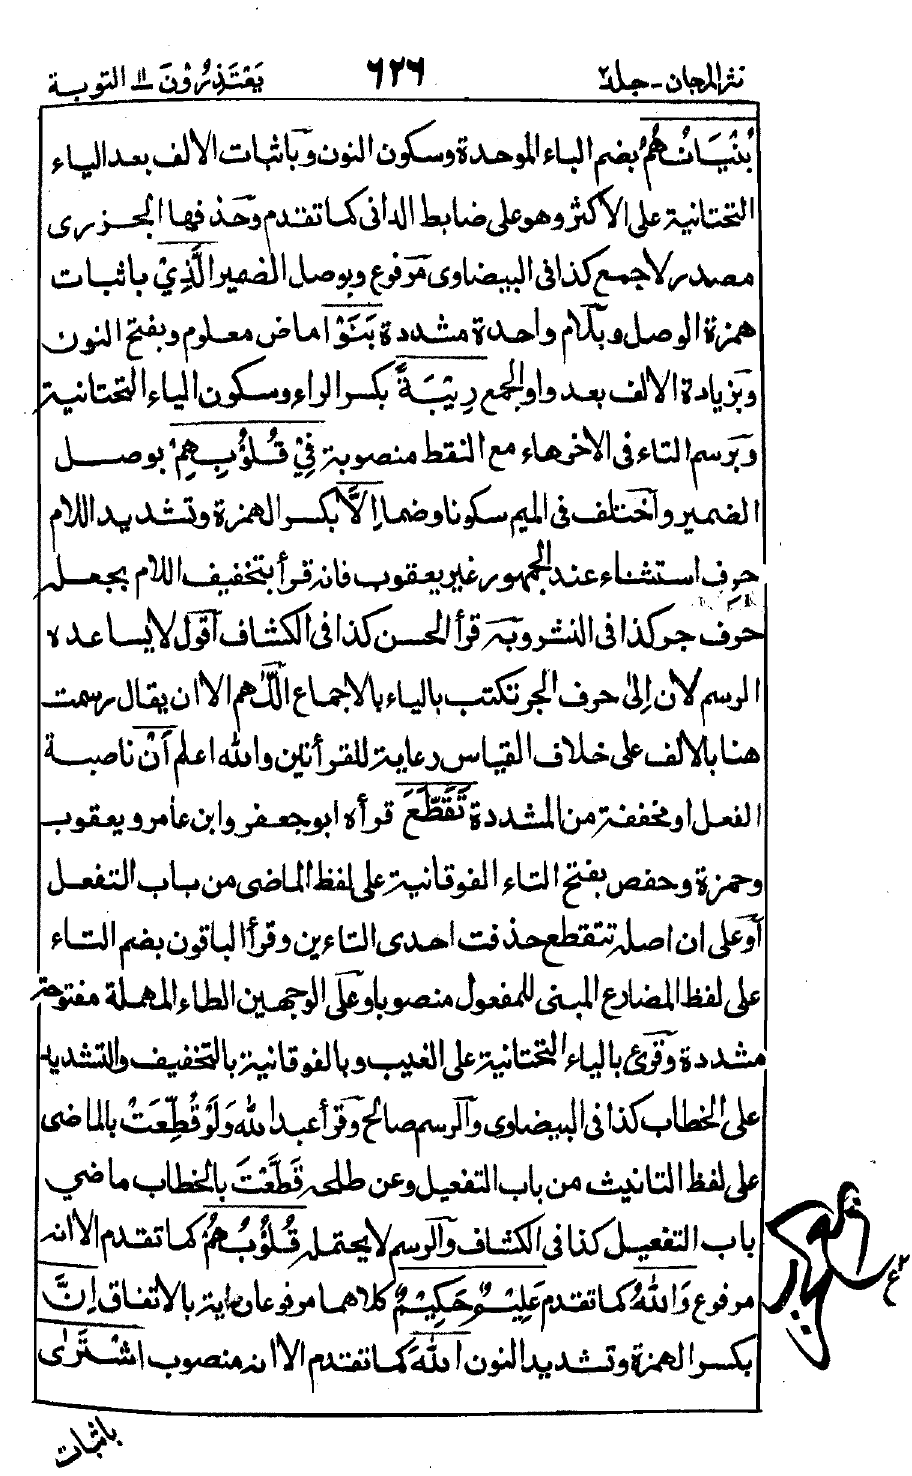 نثر المرجان - جلد ٢ ٦٢٦ يعتذرون ١١ التوبة
بُنْيَانُهُمُ بضم الباء الموحدة وسكون النون وبإثبات الالف بعد الياء
التحتانية على الأكثر وهو على ضابط الدانى كما تقدم وحذفها الجزرى
مصدر لا جمع كذا فى البيضاوى مرفوع وبوصل الضمير الَّذِيْ باثبات
همزة الوصل وبلام واحدة مشددة بَنَوْا ماض معلوم وبفتح النون
وبزيادة الالف بعد واو الجمع رِيْبَةً بكسر الراء وسكون الياء التحتانية
وبرسم التاء فى الاخر هاء مع النقط منصوبة فِيْ قُلُوْبِهِمْ بوصل
الضمير واختلف فى الميم سكونا وضما اِلَّا بكسر الهمزة وتشديد اللام
حرف استثناء عند الجمهور غير يعقوب فانه قرأ بتخفيف اللام بجعله
حرف جر كذا فى النشر وبه قرأ الحسن كذا فى الكشاف أقول لا يساعده
الرسم لان اِلىٰ حرف الجر تكتب بالياء بالاجماع اللّٰهم الا ان يقال رسمت
هنا بالالف على خلاف القياس رعاية للقرأتين والله اعلم اَنْ ناصبة
الفعل او مخففة من المشددة تَقَطَّعَ قرأه ابو جعفر وابن عامر ويعقوب
وحمزة وحفص بفتح التاء الفوقانية على لفظ الماضى من باب التفعل
أو على ان اصله تتقطع حذفت احدى التاءين وقرأ الباقون بضم التاء
على لفظ المضارع المبنى للمفعول منصوبا وعلى الوجهين الطاء المهملة مفتوحة
مشددة وقرئ بالياء التحتانية على الغيب وبالفوقانية بالتخفيف والتشديد
على الخطاب كذا فى البيضاوى والرسم صالح وقرأ عبد الله وَلَوْ قُطِّعَتْ بالماضى
على لفظ التانيث من باب التفعيل وعن طلحة قَطَّعْتَ بالخطاب ماضي
باب التفعيل كذا فى الكشاف والرسم لا يحتمله قُلُوْبُهُمْ كما تقدم الا انه
مرفوع وَاللّٰهُ كما تقدم عَلِيْمٌ حَكِيْمٌ كلاهما مرفوعان اية بالاتفاق اِنَّ
بكسر الهمزة وتشديد النون اللّٰهَ كما تقدم الا انه منصوب اشْتَرٰى
باثبات